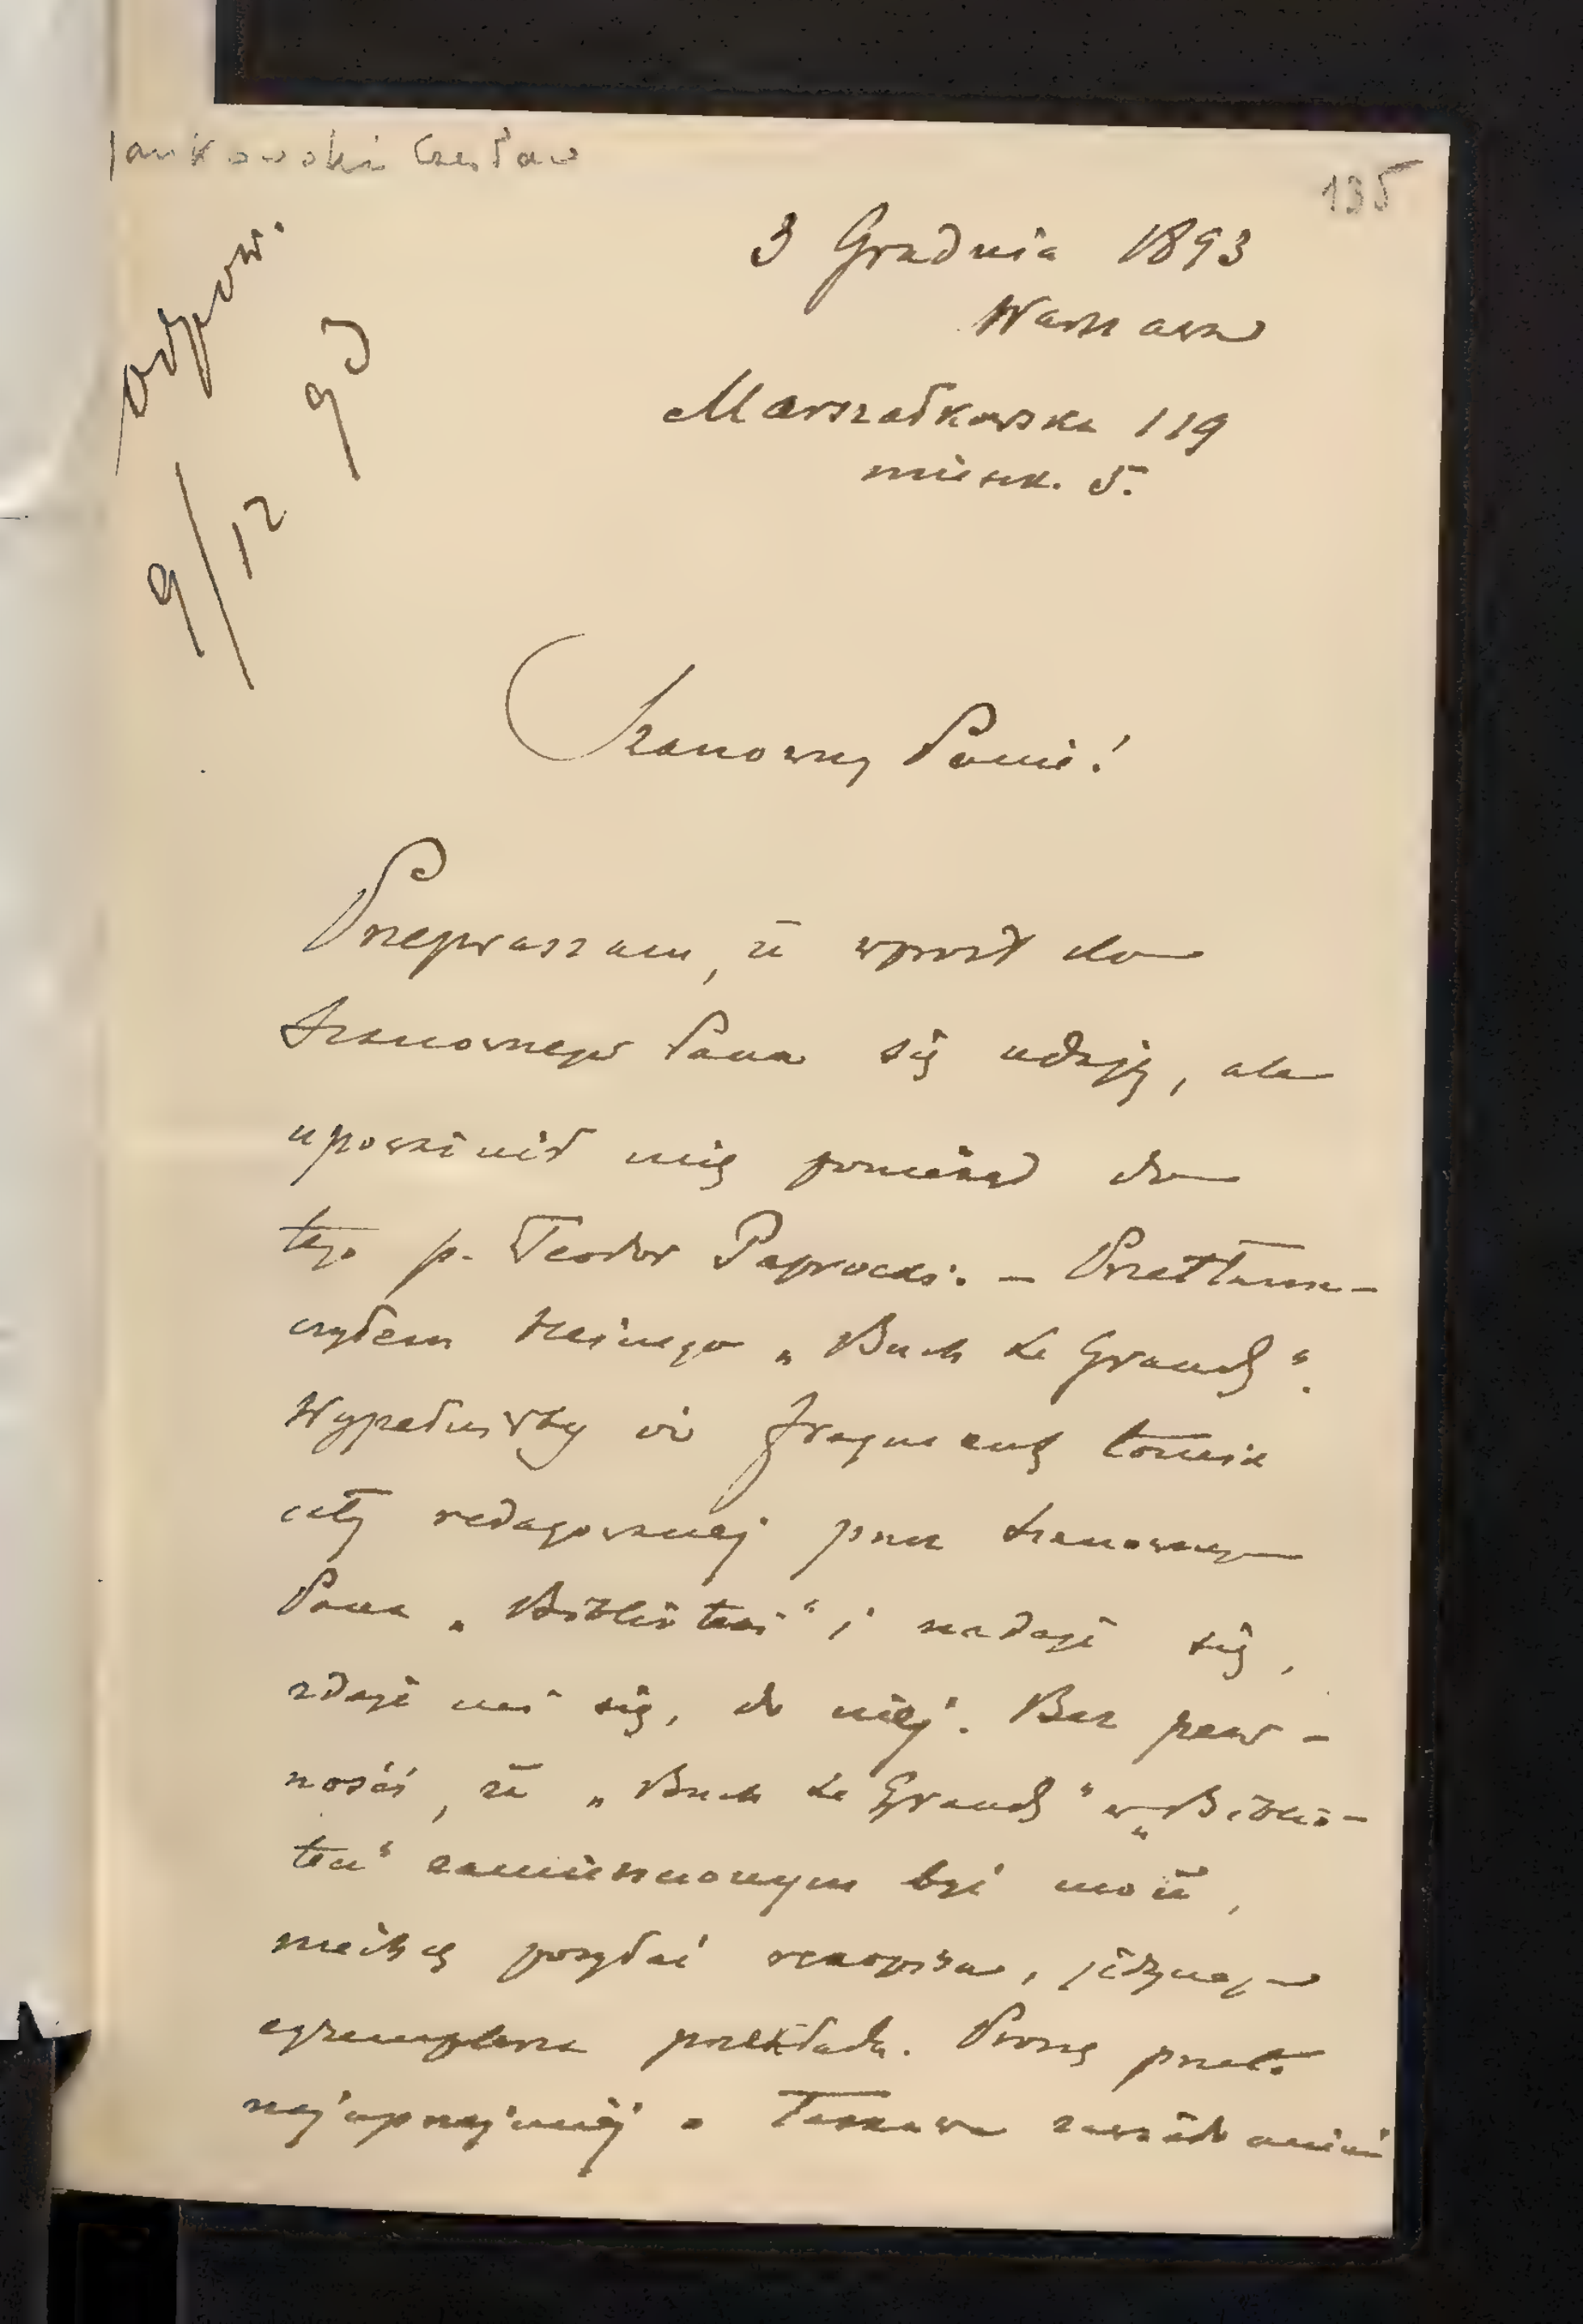 Jankowski Czesław
135
odpow.
9/12 93
3 Grudnia 1893
Warszawa
Marszałkowska 119
mieszk. 5.
Szanowny Panie!
Przepraszam, że wprost do
Szanownego Pana się udaję, ale
upoważnił mię poniekąd do
tego p. Teodor Paprocki. — Przetłum-
czyłem Heinego „Buch Le Grand“.
Wypełniłby ów fragment tomik
cały redagowanej przez Szanownego
Pana „Biblioteki“ i nadaje się,
zdaje mi się, do niej. Bez pew-
ności, że „Buch Le Grand“ w „Biblio-
tece“ zamieszczonym być może,
niechcę posyłać rękopisu, jedynego
egzemplarza przekładu. Proszę przeto
najuprzejmiej o łaskawe zawiadomienie